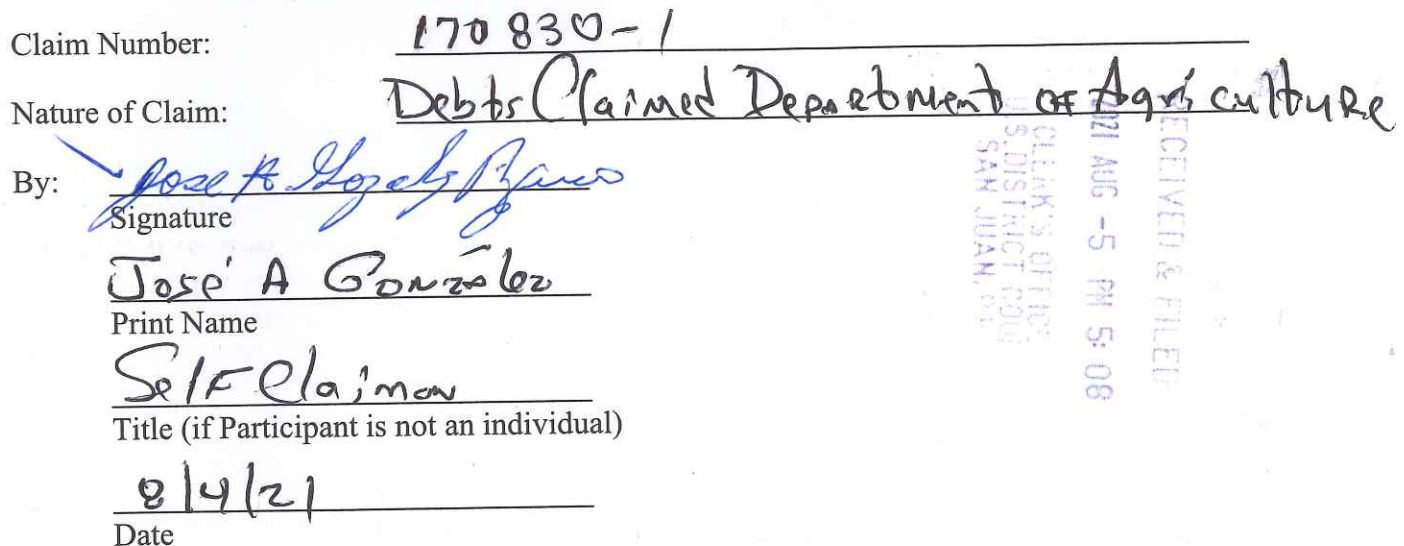 Claim Number: 170830-1
Nature of Claim: Debts Claimed Department of Agriculture
By: Jose A
Signature
José A González
Print Name
Self Claimon
Title (if Participant is not an individual)
8/4/21
Date
RECEIVED & FILED
2021 AUG -5 PM 5:08
CLERK'S OFFICE
U.S. DISTRICT COUR
SAN JUAN, P.R.